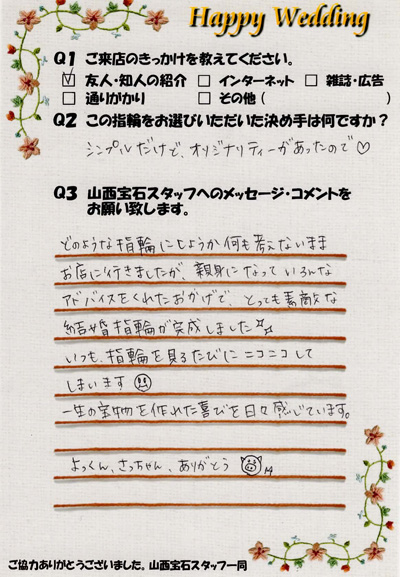 Happy Wedding
Q1 ご来店のきっかけを教えてください。
☑ 友人・知人の紹介 □ インターネット □ 雑誌・広告
□ 通りがかり □ その他( )
Q2 この指輪をお選びいただいた決め手は何ですか?
シンプルだけど、オリジナリティーがあったので♡
Q3 山西宝石スタッフへのメッセージ・コメントを
お願い致します。
どのような指輪にしようか何も考えないまま
お店に行きましたが、親身になっていろんな
アドバイスをくれたおかげで、とっても素敵な
結婚指輪が完成しました☆
いつも、指輪を見るたびにニコニコして
しまいます
一生の宝物を作れた喜びを日々感じています。
よっくん、さっちゃん、ありがとう
ご協力ありがとうございました。山西宝石スタッフ一同